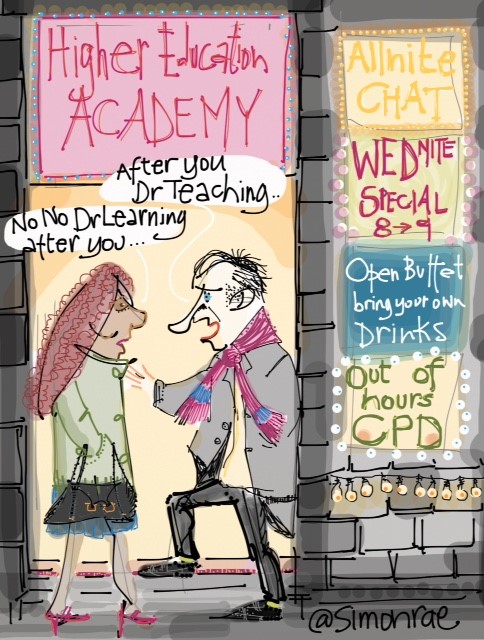 Higher Education
ACADEMY
After you
Dr Teaching..
No No Dr Learning
after you...
Allnite
CHAT
WEDNITE
SPECIAL
8→9
Open Buffet
bring your own
Drinks
Out of
hours
CPD
@simonrae